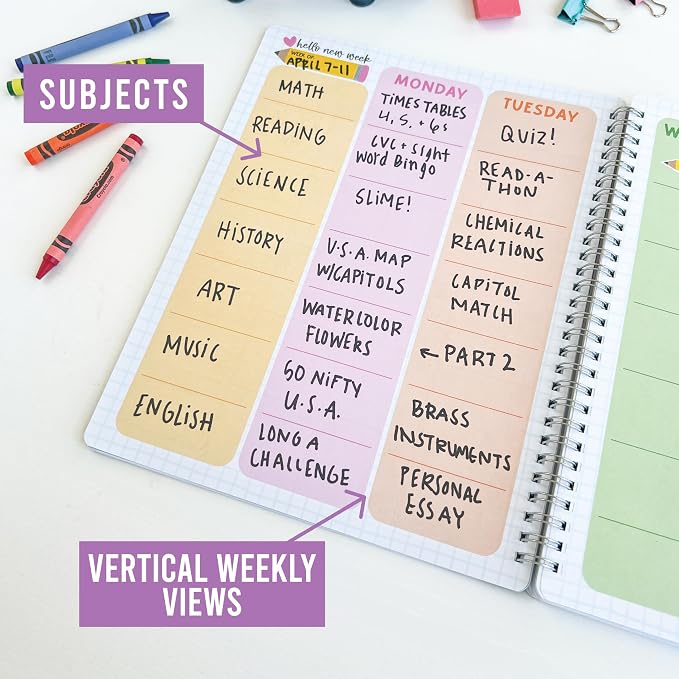 hello new week
WEEK OF
APRIL 7-11
SUBJECTS
MATH
READING
SCIENCE
HISTORY
ART
MUSIC
ENGLISH
MONDAY
TIMES TABLES
4, 5, + 6s
CVC + Sight
Word Bingo
SLIME!
U.S.A. MAP
W/CAPITOLS
WATERCOLOR
FLOWERS
50 NIFTY
U.S.A.
LONG A
CHALLENGE
TUESDAY
QUIZ!
READ-A-
THON
CHEMICAL
REACTIONS
CAPITOL
MATCH
← PART 2
BRASS
INSTRUMENTS
PERSONAL
ESSAY
W
VERTICAL WEEKLY
VIEWS